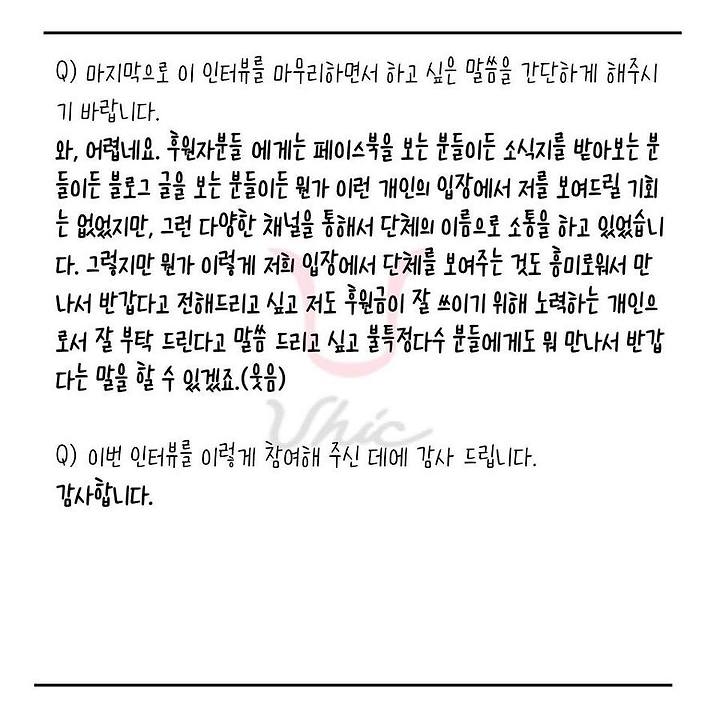 Q) 마지막으로 이 인터뷰를 마무리하면서 하고 싶은 말씀을 간단하게 해주시
기 바랍니다.
와, 어렵네요. 후원자분들 에게는 페이스북을 보는 분들이든 소식지를 받아보는 분
들이든 블로그 글을 보는 분들이든 뭔가 이런 개인의 입장에서 저를 보여드릴 기회
는 없었지만, 그런 다양한 채널을 통해서 단체의 이름으로 소통을 하고 있었습니
다. 그렇지만 뭔가 이렇게 저희 입장에서 단체를 보여주는 것도 흥미로워서 만
나서 반갑다고 전해드리고 싶고 저도 후원금이 잘 쓰이기 위해 노력하는 개인으
로서 잘 부탁 드린다고 말씀 드리고 싶고 불특정다수 분들에게도 뭐 만나서 반갑
다는 말을 할 수 있겠죠.(웃음)
Vhic
Q) 이번 인터뷰를 이렇게 참여해 주신 데에 감사 드립니다.
감사합니다.